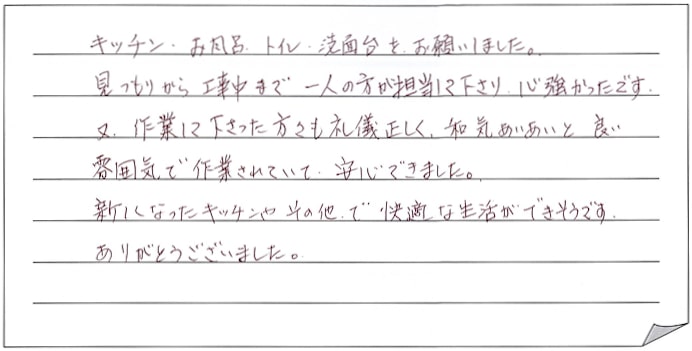 キッチン・お風呂・トイレ・洗面台を、お願いしました。
見つもりから工事中まで一人の方が担当して下さり、心強かったです。
又、作業して下さった方々も礼儀正しく、和気あいあいと良い
雰囲気で作業されていて、安心できました。
新しくなったキッチンやその他で快適な生活ができそうです。
ありがとうございました。